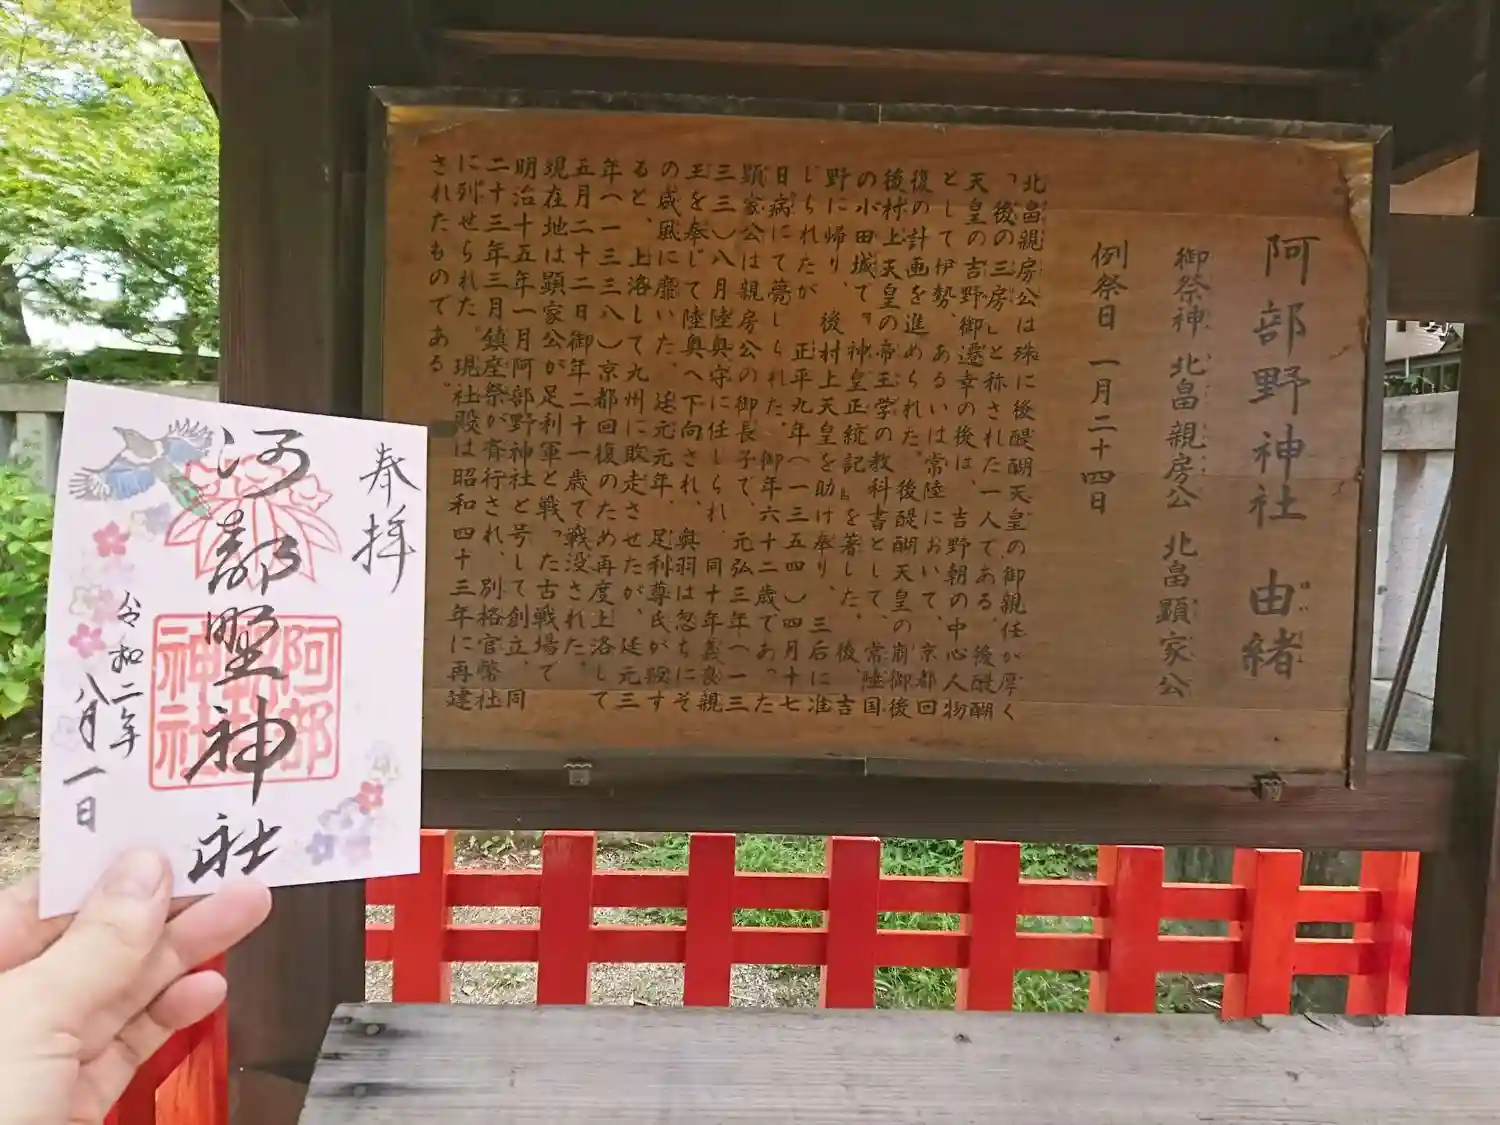 阿部野神社 由緒
御祭神 北畠親房公 北畠顕家公
例祭日 一月二十四日
北畠親房公は殊に後醍醐天皇の御親任が厚く
「後の三房」と称された一人である。後醍醐
天皇の吉野御遷幸の後は、吉野朝の中心人物
として伊勢、あるいは常陸において、京都回
復の計画を進められた。後醍醐天皇の崩御後
後村上天皇の帝王学の教科書として、常陸国
の小田城で『神皇正統記』を著した。後、吉
野に帰り、後村上天皇を助け奉り、三后に准
じられたが、正平九年(一三五四)四月十七
日病にて薨じられた、御年六十二歳であった
顕家公は親房公の御長子で、元弘三年(一三
三三)八月陸奥守に任じられ、同十年義良親
王を奉じて陸奥へ下向され、奥羽は忽ちにそ
の威風に靡いた。延元元年 足利尊氏が叛す
ると、上洛して九州に敗走させたが、延元三
年(一三三八)京都回復のため再度上洛して
五月二十二日御年二十一歳で戦没された。
現在地は顕家公が足利軍と戦った古戦場で
明治十五年一月阿部野神社と号して創立、同
二十三年三月鎮座祭が斉行され、別格官幣社
に列せられた。現社殿は昭和四十三年に再建
されたものである。
奉拝
阿部野神社
令和二年
八月一日
阿部
野
神社